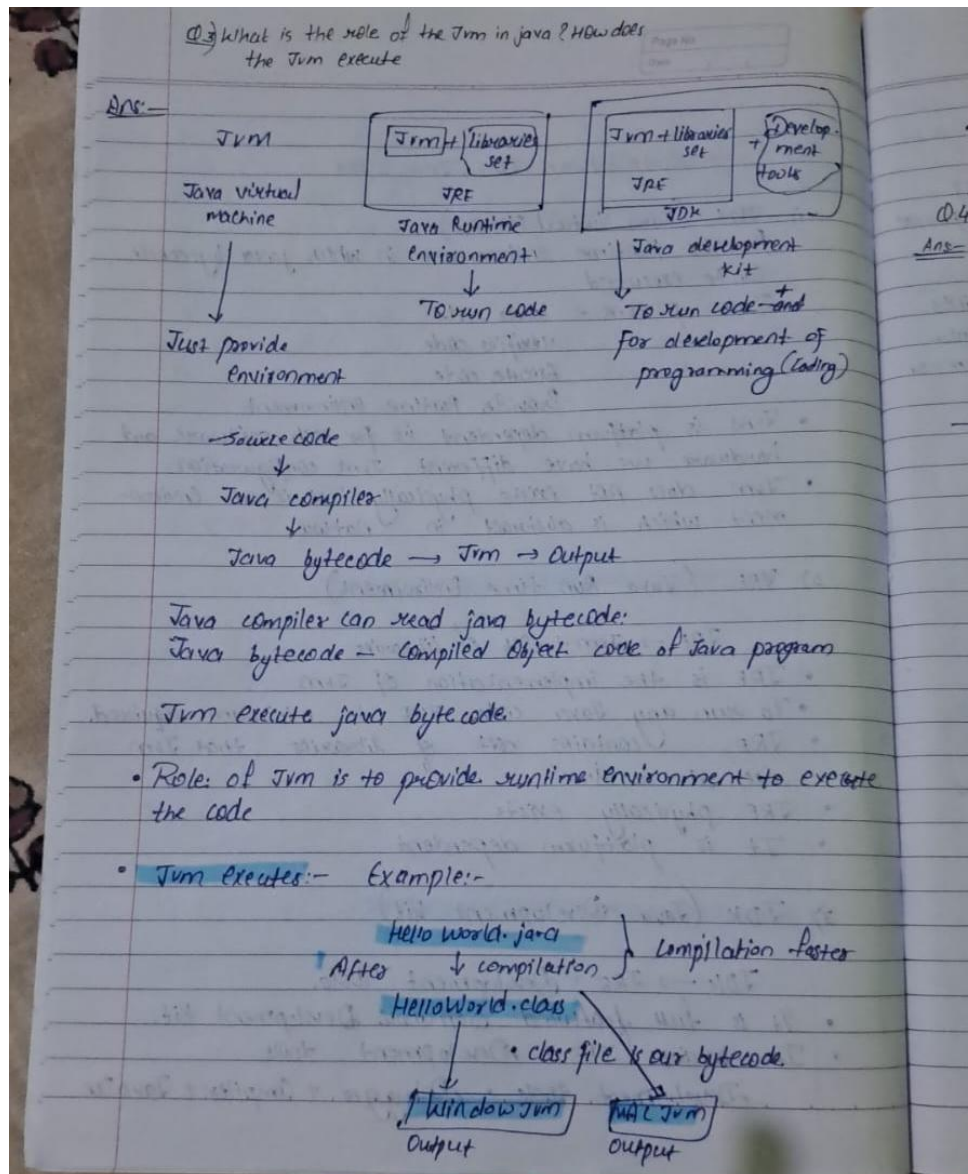 Q.3) What is the role of the Jvm in java ? How does
the Jvm execute
Page No
Date
Ans:-
Jvm
Java virtual
machine
Just provide
environment
Jvm + libraries
set
JRE
Java Runtime
environment
To run code
Jvm + libraries
set
JRE
+ Develop-
ment
tools
JDK
Java development
kit
To run code +
for development of
programming (coding)
Source code
Java compiler
Java bytecode → Jvm → output
Java compiler can read java bytecode:
Java bytecode - compiled object code of Java program
Jvm execute java bytecode.
• Role: of Jvm is to provide runtime environment to execute
the code
• Jvm executes:- Example:-
Hello world.java
After ↓ compilation } compilation faster
HelloWorld.class
• class file is our bytecode.
Window Jvm MAC Jvm
Output Output
Q.4
Ans-